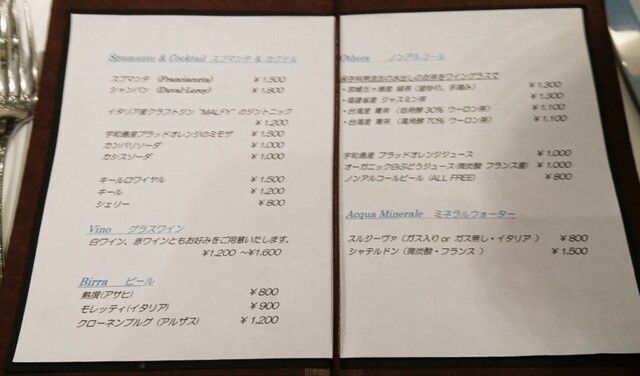 Spumante & Cocktail スプマンテ & カクテル
スプマンテ (Franciacurta) ¥1,500
シャンパン (Duval-Leroy) ¥1,800
イタリア産クラフトジン "MALFY" のジントニック
¥1,200
宇和島産ブラッドオレンジのミモザ ¥1,500
カンパリソーダ ¥1,000
カシスソーダ ¥1,000
キールロワイヤル ¥1,500
キール ¥1,200
シェリー ¥800
Vino グラスワイン
白ワイン、赤ワインともお好みをご用意いたします。
¥1,200 ～¥1,600
Birra ビール
熟撰(アサヒ) ¥800
モレッティ(イタリア) ¥900
クローネンブルグ (アルザス) ¥1,200
Others ノンアルコール
保存料無添加の水出しのお茶をワイングラスで
・宮崎五ヶ瀬産 緑茶 (釜炒り、手摘み) ¥1,300
・福建省産 ジャスミン茶 ¥1,300
・台湾産 青茶 (低発酵 30% ウーロン茶) ¥1,100
・台湾産 青茶 (高発酵 70% ウーロン茶) ¥1,100
宇和島産 ブラッドオレンジジュース ¥1,000
オーガニック白ぶどうジュース(微炭酸 フランス産) ¥1,000
ノンアルコールビール (ALL FREE) ¥800
Acqua Minerale ミネラルウォーター
スルジーヴァ (ガス入り or ガス無し・イタリア ) ¥800
シャテルドン (微炭酸・フランス ) ¥1,500